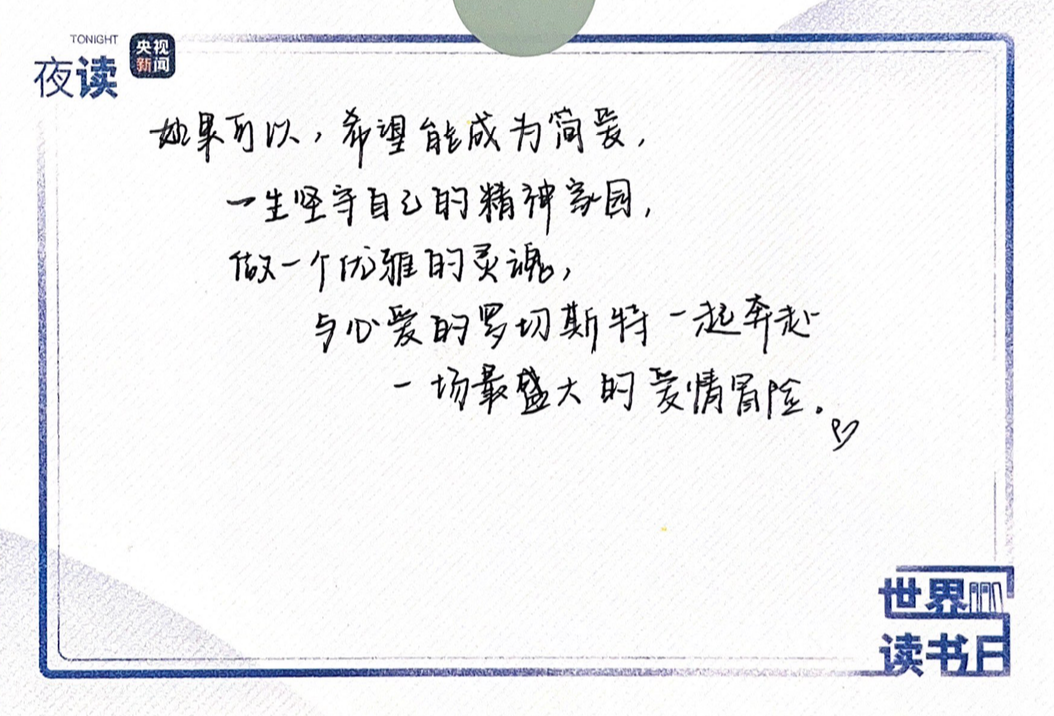 TONIGHT
夜读
央视
新闻
如果可以，希望能成为简爱，
一生坚守自己的精神家园，
做一个优雅的灵魂，
与心爱的罗切斯特一起奔赴
一场最盛大的爱情冒险。
世界
读书日